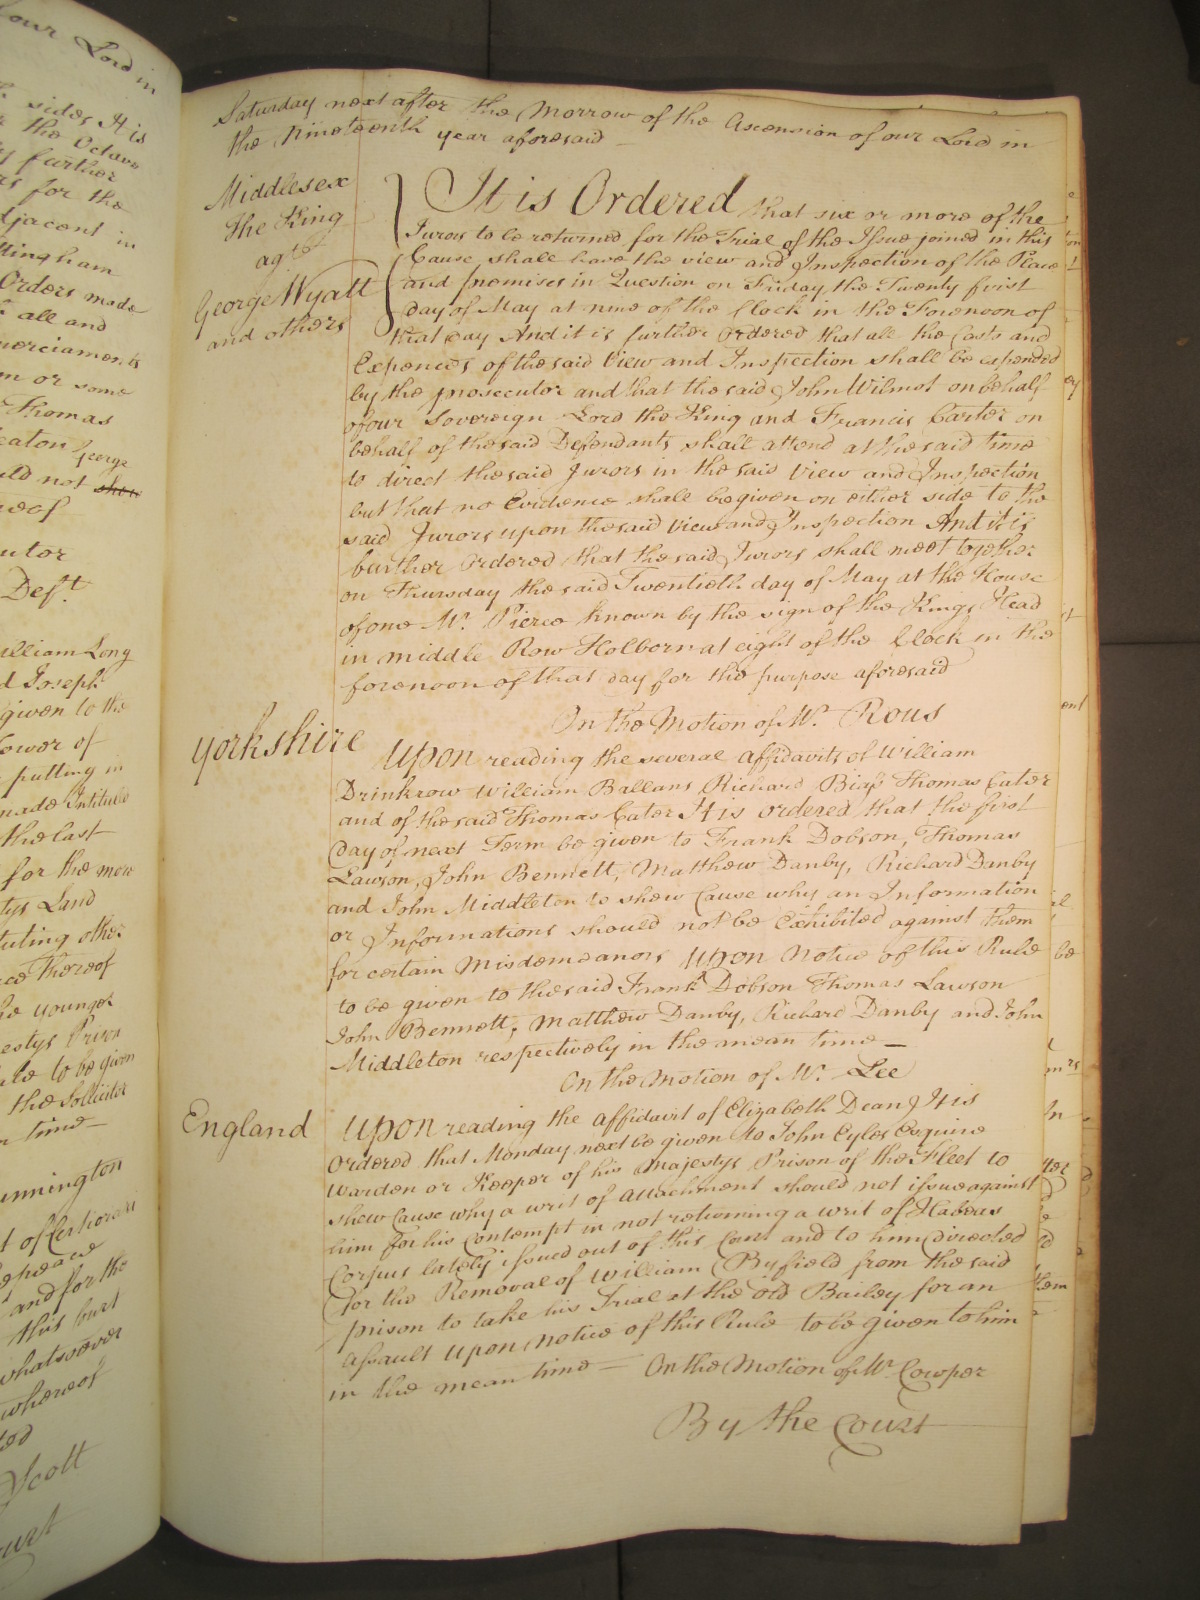 our Lord in
sides, It is
the Octave
further
rs for the
djacent in
ttingham
Orders made
all and
merciaments
m or some
Thomas
eaton George
uld not
reof
utor
Def.t
illiam Long
d Joseph
given to the
ower of
putting in
made Intituled
the last
for the mew
tys Land
tuting other
ce thereof
he younger
estys Privy
ale to be given
the Sollicitor
n time
unnington
t of Certiorari
and for the
this Court
whatsoever
whereof
Scott
ourt
Saturday next after the Morrow of the Ascension of our Lord in
the Nineteenth year aforesaid
Middlesex
The King
ag.st
George Wyatt
and others
It is Ordered that six or more of the
Jurors to be returned for the Trial of the Issue joined in this
Cause shall have the view and Inspection of the Place
and premises in Question on Friday the Twenty first
day of May at nine of the Clock in the Forenoon of
that day And it is further ordered that all the Costs and
Expences of the said View and Inspection shall be expended
by the prosecutor and that the said John Wilmot on behalf
of our Sovereign Lord the King and Francis Carter on
behalf of the said Defendants shall attend at the said time
to direct the said Jurors in the said View and Inspection
but that no Evidence shall be given on either side to the
said Jurors upon the said View and Inspection And it is
further Ordered that the said Jurors shall meet together
on Thursday the said Twentieth day of May at the House
of one Mr. Pierce known by the sign of the Kings Head
in middle Row Holborn at eight of the Clock in the
forenoon of that day for the purpose aforesaid
On the Motion of Mr. Rous
Yorkshire
Upon reading the several affidavits of William
Drinkrow William Ballans Richard Thomas Cater
and of the said Thomas Cater It is ordered that the first
day of next Term be given to Frank Dobson, Thomas
Lawson, John Bennett, Matthew Danby, Richard Danby
and John Middleton to shew Cause why an Information
or Informations should not be Exhibited against them
for certain Misdemeanors Upon Notice of this Rule
to be given to the said Frank Dobson Thomas Lawson
John Bennett, Matthew Danby, Richard Danby and John
Middleton respectively in the mean time
On the Motion of Mr. Lee
England
Upon reading the affidavit of Elizabeth Dean It is
Ordered that Monday next be given to John Eyles Esquire
Warden or Keeper of his Majestys Prison of the Fleet to
shew Cause why a writ of attachment should not issue against
him for his Contempt in not returning a writ of Habeas
Corpus lately issued out of this Court and to him directed
for the Removal of William Byfield from the said
prison to take his Trial at the Old Bailey for an
assault Upon Notice of this Rule to be given to him
in the mean time On the Motion of Mr. Cowper
By the Court